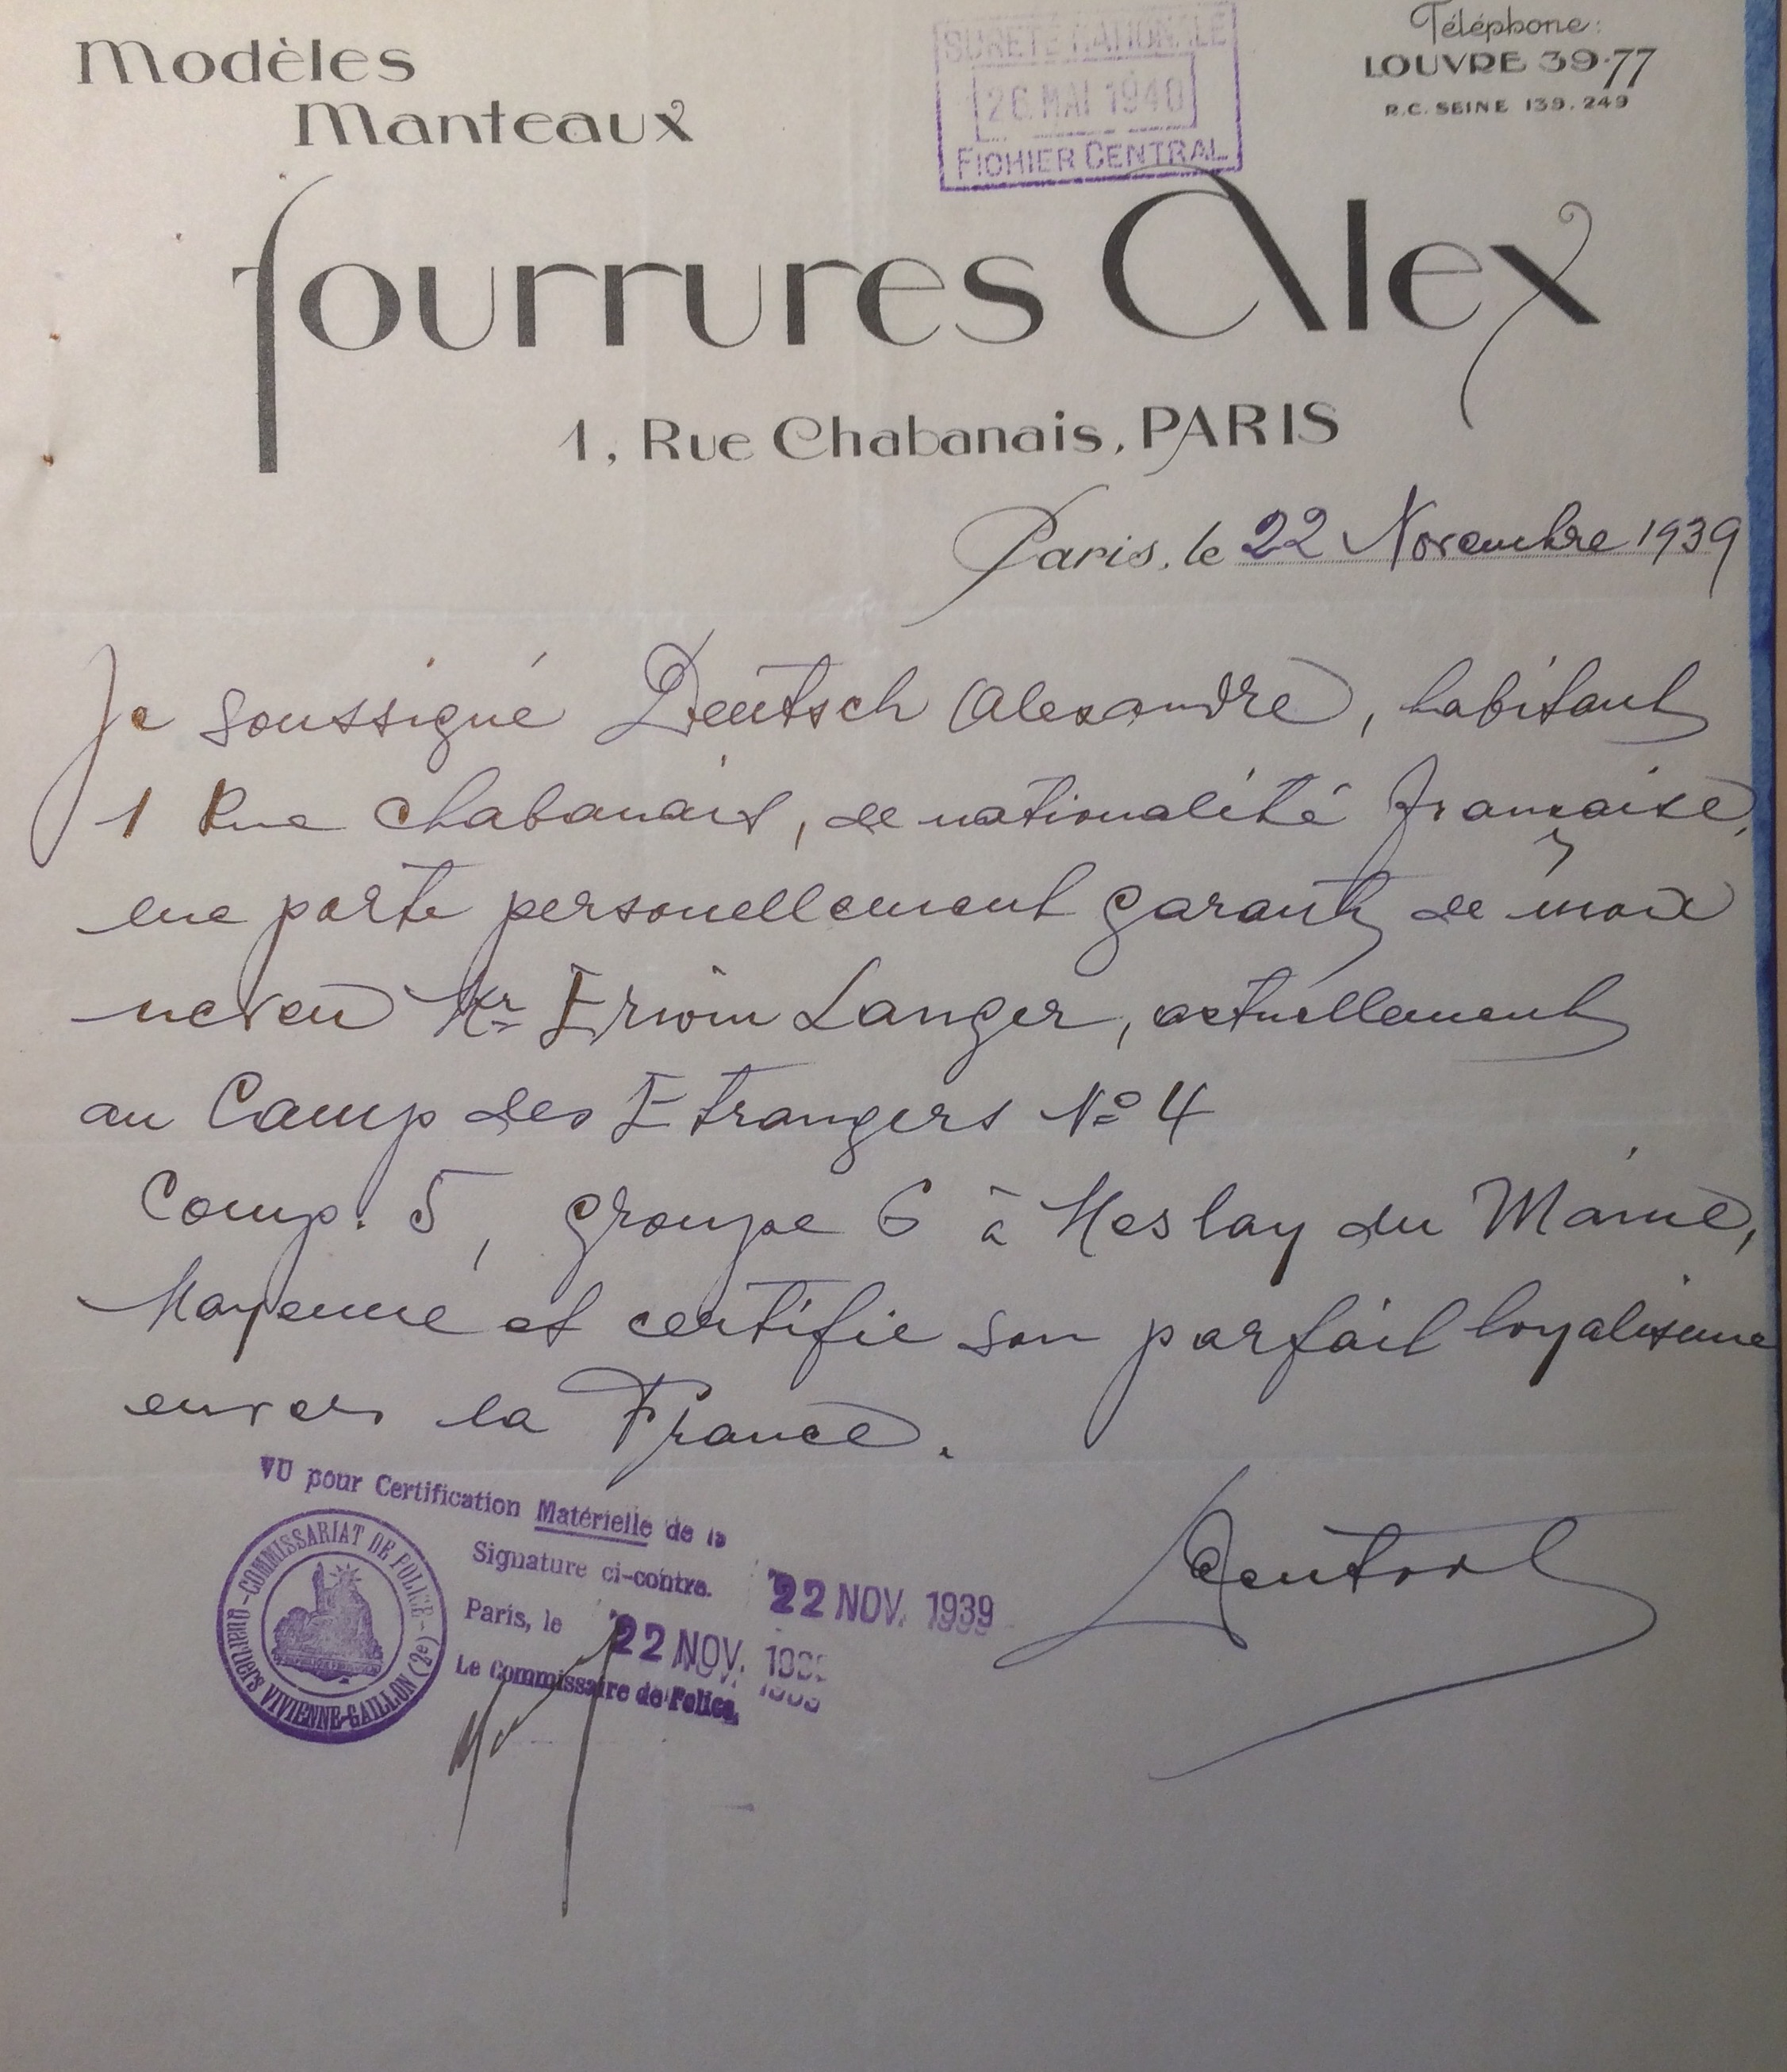 Modèles
Manteaux
SURETÉ NATIONALE
26 MAI 1940
FICHIER CENTRAL
Téléphone:
LOUVRE 39-77
R.C. SEINE 139.249
fourrures Alex
1, Rue Chabanais, PARIS
Paris, le 22 Novembre 1939
Je soussigné Deutsch Alexandre, habitant
1 Rue Chabanais, de nationalité française,
me porte personellement garant de mon
neveu Mr Erwin Langer, actuellement
au Camp des Etrangers No 4
Comp. 5, groupe 6 à Meslay du Maine,
Mayenne et certifie son parfait loyalisme
envers la France.
VU pour Certification Matérielle de la
Signature ci-contre.
22 NOV. 1939
Paris, le 22 NOV.
Le Commissaire de Police,
COMMISSARIAT DE POLICE
Quartiers VIVIENNE-GAILLON (2e)
Deutsch